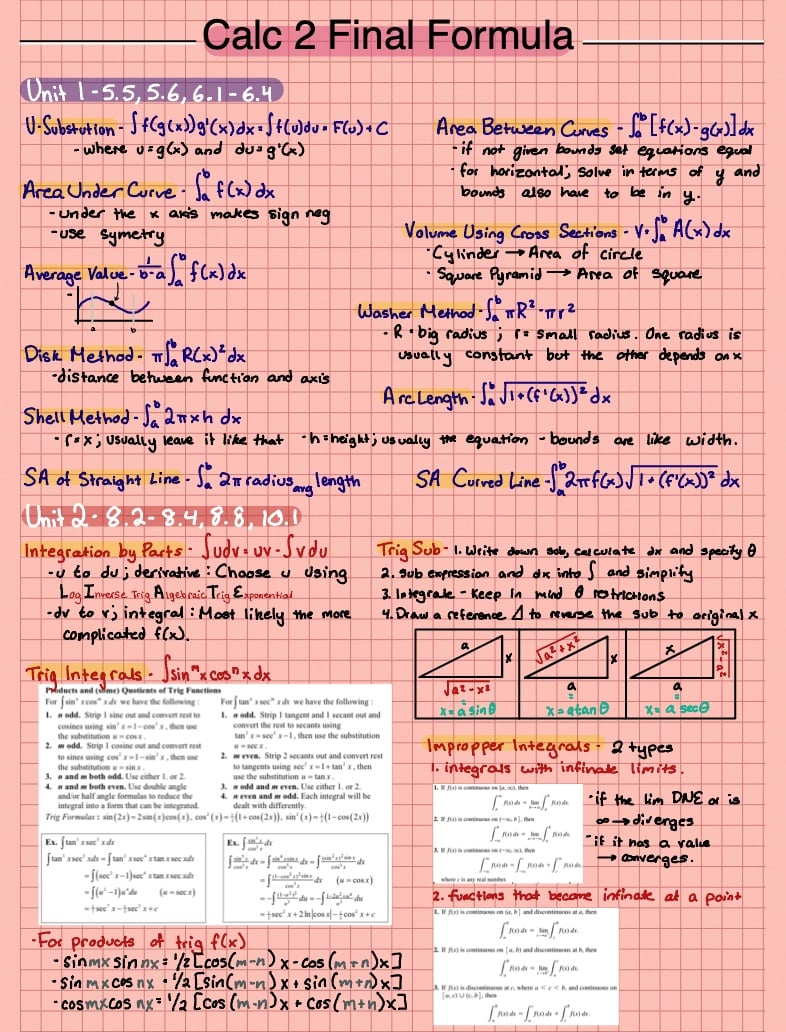 Calc 2 Final Formula
Unit 1 - 5.5, 5.6, 6.1 - 6.4
U-Substution - ∫f(g(x))g'(x)dx = ∫f(u)du = F(u) + C
- where u = g(x) and du = g'(x)
Area Under Curve - ∫ₐᵇ f(x)dx
- under the x axis makes sign neg
- use symetry
Average Value - 1/b-a ∫ₐᵇ f(x)dx
a b
Disk Method - π∫ₐᵇ R(x)² dx
- distance between function and axis
Area Between Curves - ∫ₐᵇ [f(x) - g(x)]dx
- if not given bounds set equations equal
- for horizontal; solve in terms of y and
bounds also have to be in y.
Volume Using Cross Sections - V = ∫ₐᵇ A(x)dx
· Cylinder → Area of circle
· Square Pyramid → Area of square
Washer Method - ∫ₐᵇ πR² - πr²
- R = big radius ; r = small radius. One radius is
usually constant but the other depends on x
Arc Length - ∫ₐᵇ √1 + (f'(x))² dx
Shell Method - ∫ₐᵇ 2πxh dx
- r = x; usually leave it like that - h = height; usually the equation - bounds are like width.
SA of Straight Line - ∫ₐᵇ 2π radius avg length
SA Curved Line - ∫ₐᵇ 2πf(x)√1 + (f'(x))² dx
Unit 2 - 8.2 - 8.4, 8.8, 10.1
Integration by Parts - ∫udv = uv - ∫vdu
- u to du; derivative : Choose u Using
Log Inverse Trig Algebraic Trig Exponential
- dv to v; integral : Most likely the more
complicated f(x).
Trig Integrals - ∫sinᵐx cosⁿx dx
Products and (some) Quotients of Trig Functions
For ∫sinⁿ x cosᵐ x dx we have the following :
1. n odd. Strip 1 sine out and convert rest to
cosines using sin² x = 1 - cos² x, then use
the substitution u = cos x.
2. m odd. Strip 1 cosine out and convert rest
to sines using cos² x = 1 - sin² x, then use
the substitution u = sin x.
3. n and m both odd. Use either 1. or 2.
4. n and m both even. Use double angle
and/or half angle formulas to reduce the
integral into a form that can be integrated.
For ∫tanⁿ x secᵐ x dx we have the following :
1. n odd. Strip 1 tangent and 1 secant out and
convert the rest to secants using
tan² x = sec² x - 1, then use the substitution
u = sec x.
2. m even. Strip 2 secants out and convert rest
to tangents using sec² x = 1 + tan² x, then
use the substitution u = tan x.
3. n odd and m even. Use either 1. or 2.
4. n even and m odd. Each integral will be
dealt with differently.
Trig Formulas : sin(2x) = 2sin(x)cos(x), cos²(x) = ½(1 + cos(2x)), sin²(x) = ½(1 - cos(2x))
Ex. ∫tan³ x sec⁵ x dx
∫tan³ x sec⁵ x dx = ∫tan² x sec⁴ x tan x sec x dx
= ∫(sec² x - 1)sec⁴ x tan x sec x dx
= ∫(u² - 1)u⁴ du (u = sec x)
= ⅐ sec⁷ x - ⅕ sec⁵ x + c
Ex. ∫ sin⁵x/cos³x dx
∫ sin⁵x/cos³x dx = ∫ sin⁴x sin x/cos³x dx = ∫ (sin²x)² sin x/cos³x dx
= ∫ (1-cos²x)² sin x/cos³x dx (u = cos x)
= -∫ (1-u²)²/u³ du = -∫ 1-2u²+u⁴/u³ du
= ½ sec² x + 2 ln|cos x| - ½ cos² x + c
- For products of trig f(x)
- sin mx sin nx = 1/2 [cos(m-n)x - cos(m+n)x]
- sin mx cos nx = 1/2 [sin(m-n)x + sin(m+n)x]
- cos mx cos nx = 1/2 [cos(m-n)x + cos(m+n)x]
Trig Sub - 1. Write down sub, calculate dx and specify θ
2. sub expression and dx into ∫ and simplify
3. Integrate - Keep in mind θ restrictions
4. Draw a reference △ to reverse the sub to original x
a x √a² - x² x = a sinθ
√a² + x² x a x = a tanθ
x √x² - a² a x = a secθ
Impropper Integrals - 2 types
1. integrals with infinate limits.
1. If f(x) is continuous on [a, ∞), then
∫ₐ^∞ f(x) dx = lim ∫ₐᵇ f(x) dx.
2. If f(x) is continuous on (-∞, b], then
∫₋∞ᵇ f(x) dx = lim ∫ₐᵇ f(x) dx.
3. If f(x) is continuous on (-∞, ∞), then
∫₋∞^∞ f(x) dx = ∫₋∞ᶜ f(x) dx + ∫꜀^∞ f(x) dx,
where c is any real number.
- if the lim DNE or is
∞ → diverges
- if it has a value
→ converges.
2. functions that become infinate at a point
1. If f(x) is continuous on (a, b] and discontinuous at a, then
∫ₐᵇ f(x) dx = lim ∫꜀ᵇ f(x) dx.
2. If f(x) is continuous on [a, b) and discontinuous at b, then
∫ₐᵇ f(x) dx = lim ∫ₐᶜ f(x) dx.
3. If f(x) is discontinuous at c, where a < c < b, and continuous on
[a, c) ∪ (c, b], then
∫ₐᵇ f(x) dx = ∫ₐᶜ f(x) dx + ∫꜀ᵇ f(x) dx.